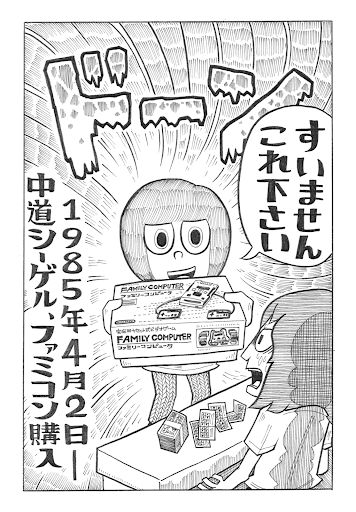 ドーン
すいません
これ下さい
1985年4月2日―
中道シーゲル、ファミコン購入
FAMILY COMPUTER
ファミリーコンピュータ
FAMILY COMPUTER
ファミリーコンピュータ